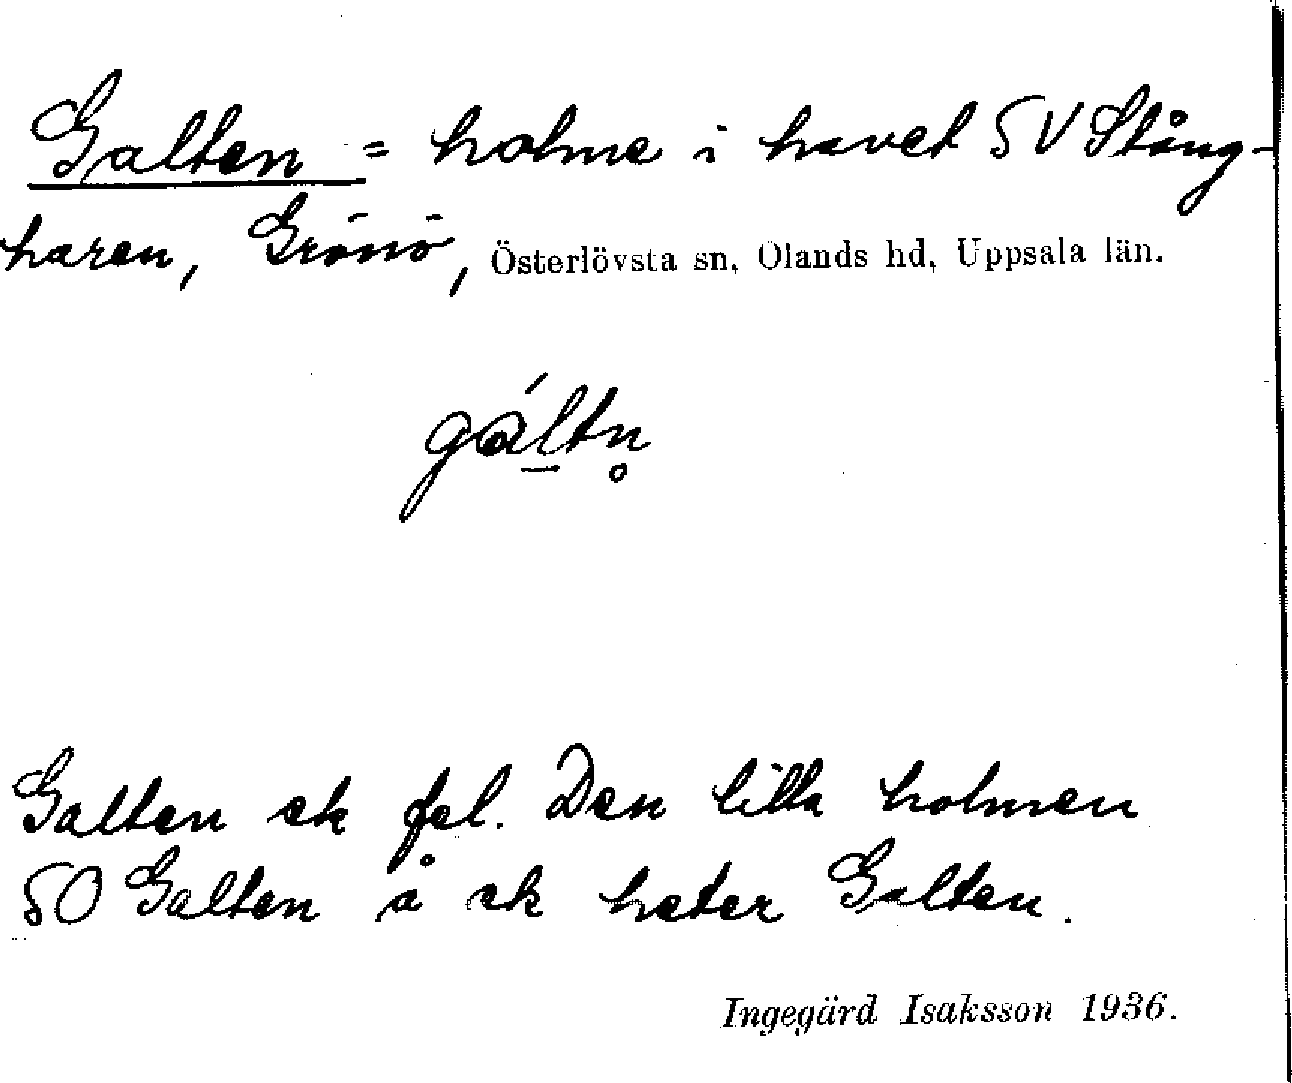 Galten = holme i havet SV Stång-
haren, Grönö, Österlövsta sn, Olands hd, Uppsala län.
gáltn̥
Galten ek fel. Den lilla holmen
SO Galten å ek heter Galten.
Ingegärd Isaksson 1936.